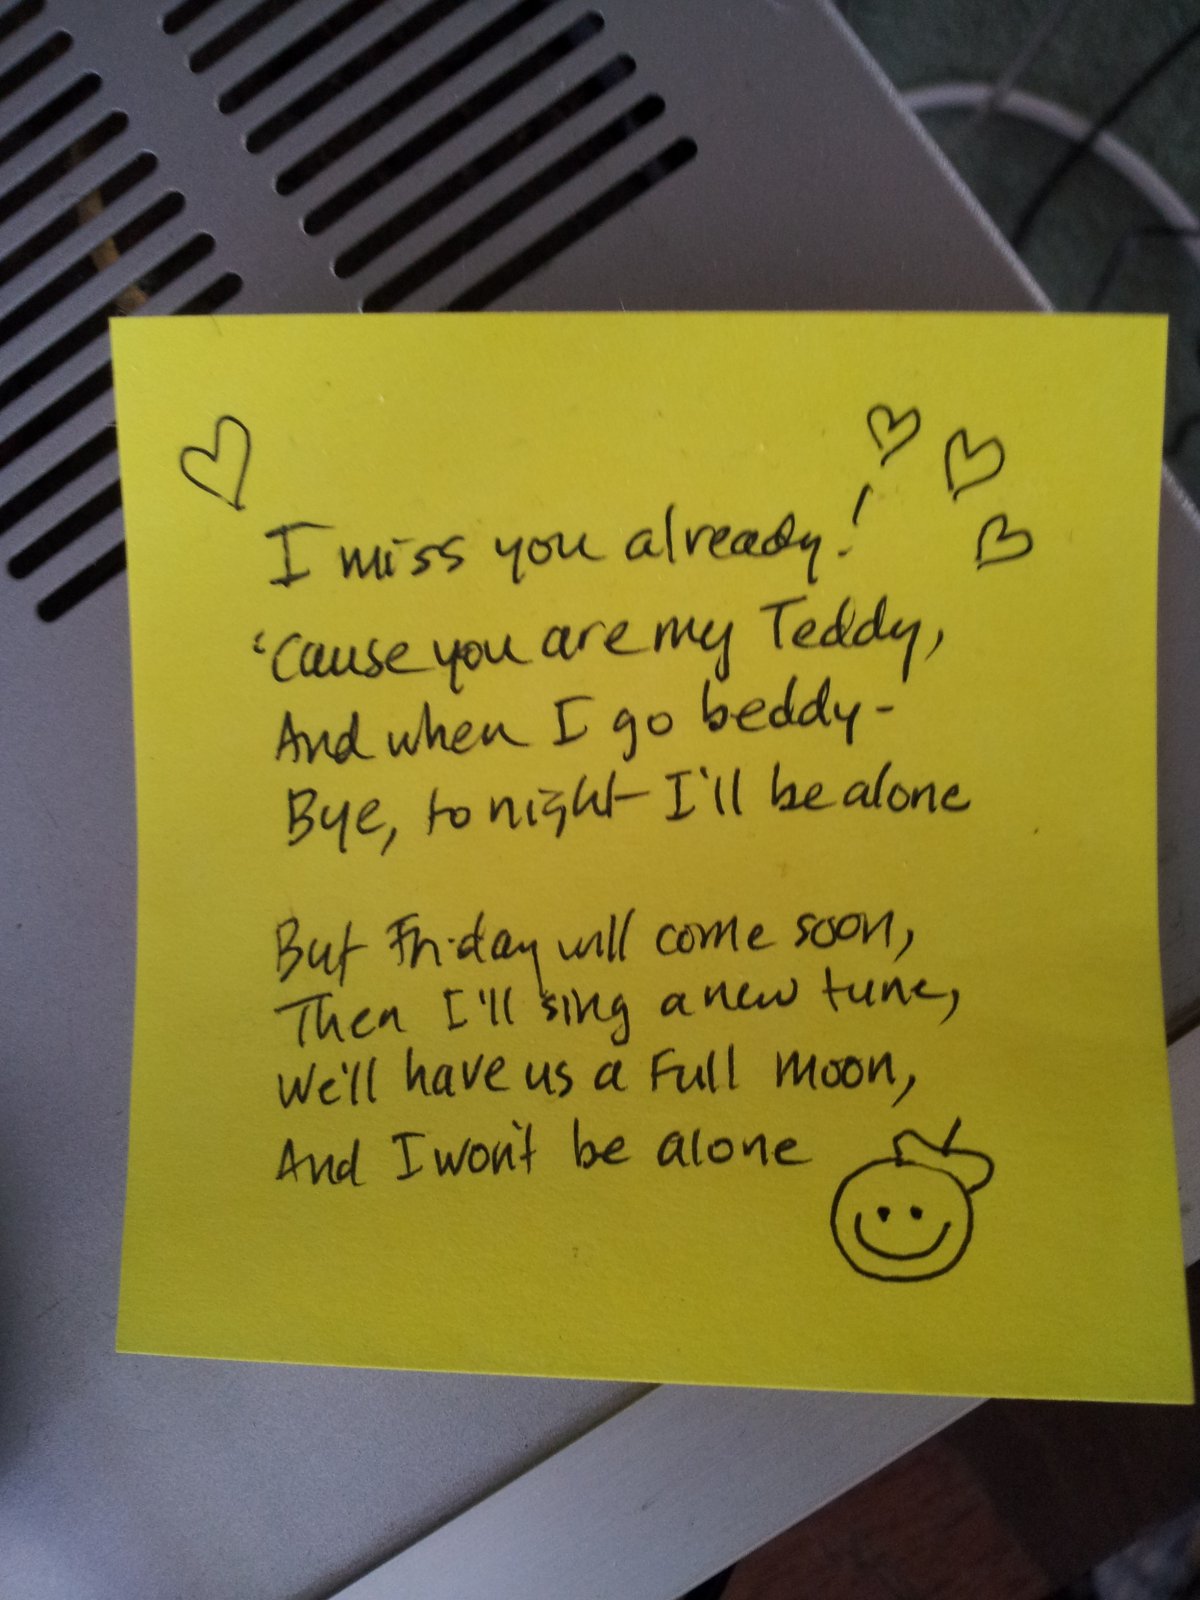 I miss you already!
'Cause you are my Teddy,
And when I go beddy-
Bye, tonight I'll be alone
But Friday will come soon,
Then I'll sing a new tune,
We'll have us a Full moon,
And I won't be alone